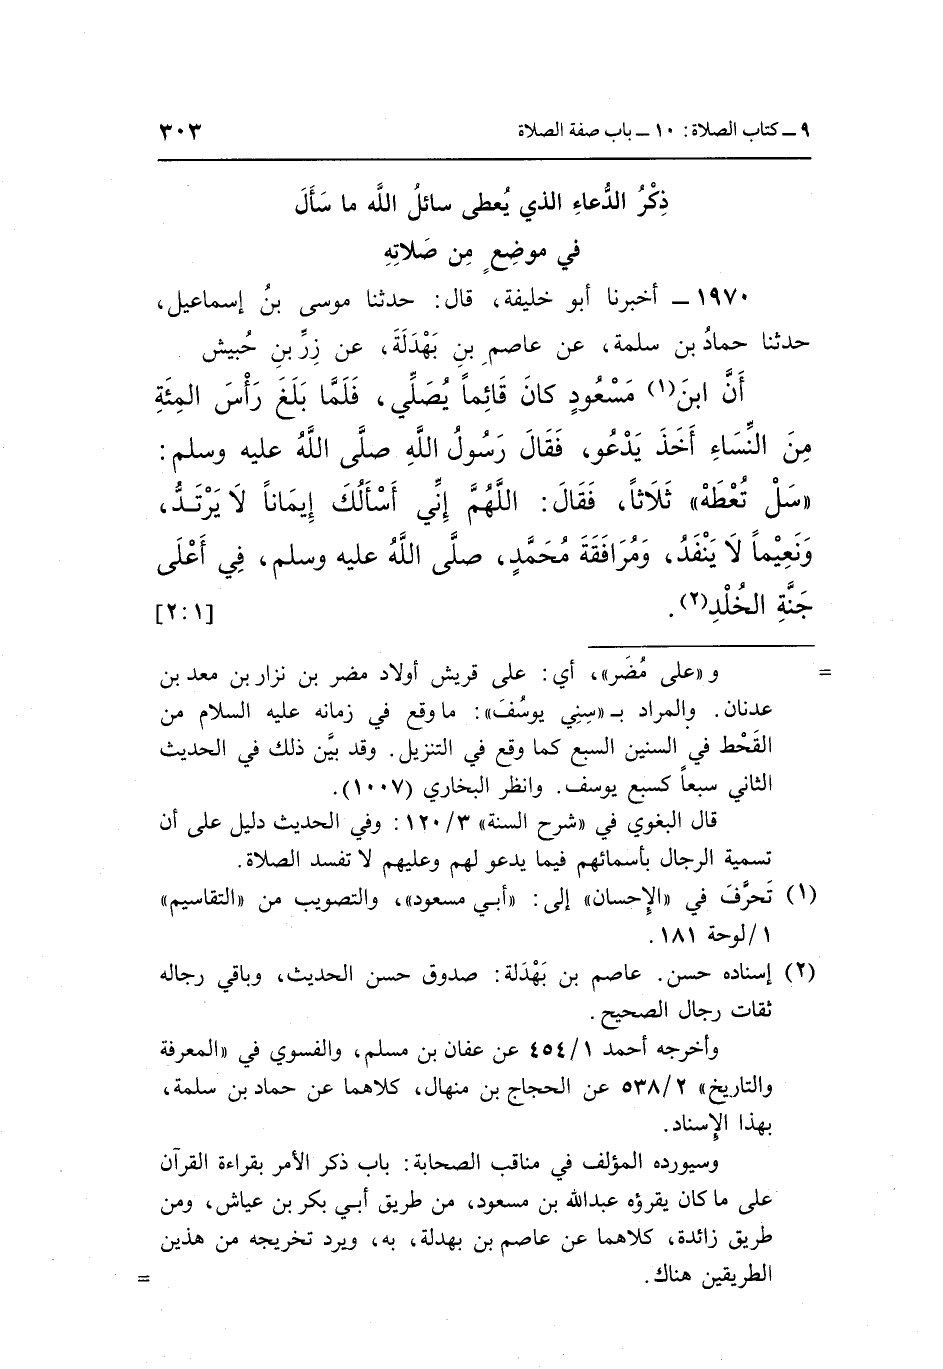 ٩ ـ كتاب الصلاة: ١٠ ـ باب صفة الصلاة ٣٠٣
ذِكْرُ الدُّعاءِ الذي يُعطى سائلُ اللَّه ما سَأَلَ
في موضِعٍ مِن صَلاتِهِ
١٩٧٠ ـ أخبرنا أبو خليفة، قال: حدثنا موسى بنُ إسماعيل،
حدثنا حمادُ بن سلمة، عن عاصمِ بنِ بَهْدَلَةَ، عن زِرِّ بنِ حُبيش
أَنَّ ابنَ(١) مَسْعُودٍ كانَ قَائِماً يُصَلِّي، فَلَمَّا بَلَغَ رَأْسَ المِئَةِ
مِنَ النِّسَاءِ أَخَذَ يَدْعُو، فَقَالَ رَسُولُ اللَّهِ صلَّى اللَّهُ عليه وسلم:
«سَلْ تُعْطَهْ» ثَلَاثاً، فَقَالَ: اللَّهُمَّ إِنِّي أَسْأَلُكَ إِيمَاناً لَا يَرْتَدُّ،
وَنَعِيْماً لَا يَنْفَدُ، وَمُرَافَقَةَ مُحَمَّدٍ، صلَّى اللَّهُ عليه وسلم، فِي أَعْلَى
جَنَّةِ الخُلْدِ(٢). [٢:١]
= و«على مُضَر»، أي: على قريش أولاد مضر بن نزار بن معد بن
عدنان. والمراد بـ «سِني يوسُفَ»: ما وقع في زمانه عليه السلام من
القَحْط في السنين السبع كما وقع في التنزيل. وقد بيَّن ذلك في الحديث
الثاني سبعاً كسبع يوسف. وانظر البخاري (١٠٠٧).
قال البغوي في «شرح السنة» ١٢٠/٣: وفي الحديث دليل على أن
تسمية الرجال بأسمائهم فيما يدعو لهم وعليهم لا تفسد الصلاة.
(١) تَحرَّفَ في «الإِحسان» إلى: «أبي مسعود»، والتصويب من «التقاسيم»
١/لوحة ١٨١.
(٢) إسناده حسن. عاصم بن بَهْدَلة: صدوق حسن الحديث، وباقي رجاله
ثقات رجال الصحيح.
وأخرجه أحمد ٤٥٤/١ عن عفان بن مسلم، والفسوي في «المعرفة
والتاريخ» ٥٣٨/٢ عن الحجاج بن منهال، كلاهما عن حماد بن سلمة،
بهذا الإِسناد.
وسيورده المؤلف في مناقب الصحابة: باب ذكر الأمر بقراءة القرآن
على ما كان يقرؤه عبدالله بن مسعود، من طريق أبي بكر بن عياش، ومن
طريق زائدة، كلاهما عن عاصم بن بهدلة، به، ويرد تخريجه من هذين
الطريقين هناك. =